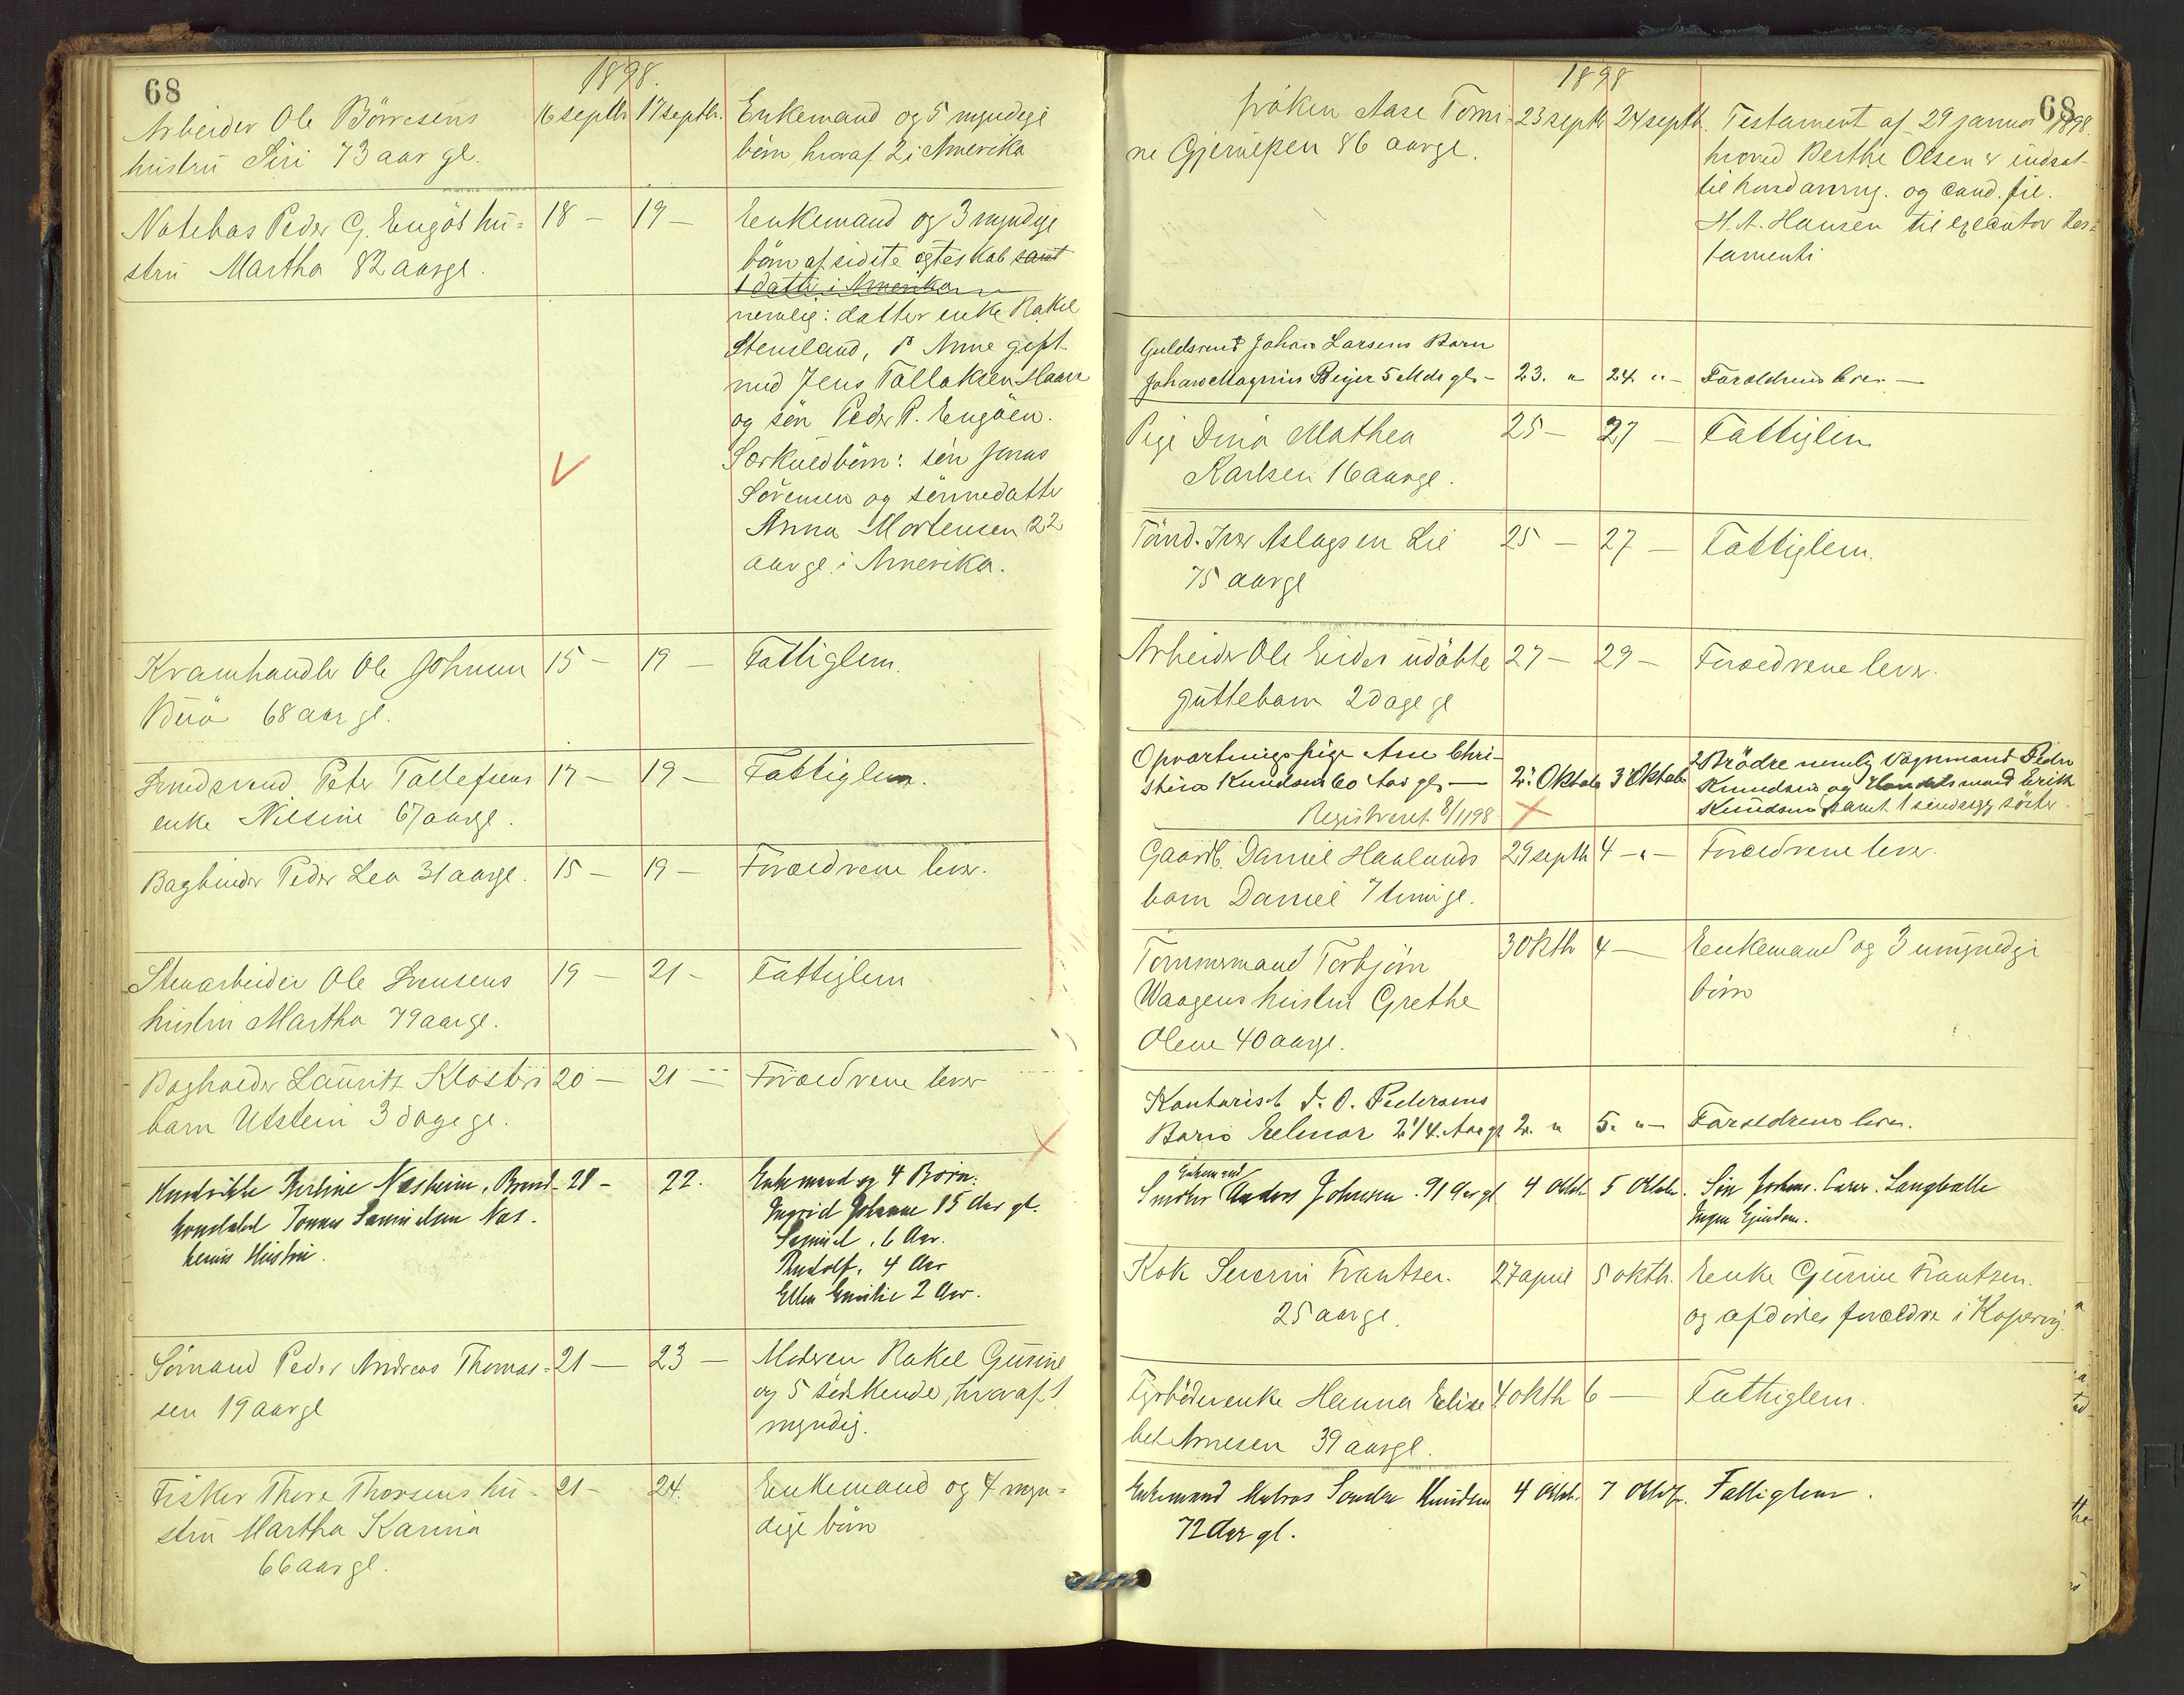 68
1898.
Arbeider Ole Börresens
hustru Siri 73 aar gl.
16 septbr 17 septbr.
Enkemand og 5 myndige
börn, hvoraf 2 i Amerika
Notebas Peder G. Engös hu-
stru Martha 82 aar gl.
18 — 19 —
Enkemand og 3 myndige
börn af sidste egteskab samt
1 datter i Amerika
nemlig: datter enke Rakel
Stensland, Anne gift
med Jens Tallaksen Haaer
og sön Peder P. Engöen.
Særkuldbörn: sön Jonas
Sörensen og sönnedatter
Anna Mortensen 22
aar gl. i Amerika.
Kramhandler Ole Johnsen
Buö 68 aar gl.
15 — 19 —
Fattiglem.
Smedsvend Peter Tollefsens
enke Nilsine 67 aar gl.
17 — 19 —
Fattiglem.
Bagbinder Peder Lea 31 aar gl.
15 — 19 —
Forældrene lever.
Stenarbeider Ole Svensens
hustru Martha 79 aar gl.
19 — 21 —
Fattiglem
Bogholder Lauritz Klosters
barn Utstein 3 dage gl.
20 — 21 —
Forældrene lever
Hendrikke Berline Næsheim, Brand-
konstabel Tönnes Samuelsen Næs-
heims Hustru.
20 — 22.
Enkemand og 4 Börn:
Ingrid Johanne 15 Aar gl.
Samuel, 6 Aar.
Rudolf, 4 Aar
Ella Emilie 2 Aar.
Sömand Peder Andreas Thomas-
sen 19 aar gl
21 — 23 —
Moderen Rakel Gurine
og 5 södskende, hvoraf 1
myndig.
Fisker Thore Thorsens hu-
stru Martha Karina
66 aar gl.
21 — 24.
Enkemand og 4 myn-
dige börn
1898
68
fröken Aase Tomi-
ne Gjeruldsen 86 aar gl.
23 septbr 24 septbr.
Testament af 29 januar 1898.
hvorved Berthe Olsen er indsat
til hovedarving. og cand. fil.
H. A. Hansen til executor tes-
tamenti
Guldsmed Johan Larsens Barn
Johan Magnus Beyer 5 Mdr gl. —
23. " 24. " —
Forældrene lever. —
Pige Dina Mathea
Karlsen 16 aar gl.
25 — 27 —
Fattiglem
Tömd. Iver Aslagsen Lie
75 aar gl
25 — 27 —
Fattiglem.
Arbeider Ole Eides udöbte
guttebarn 2 dage gl
27 — 29 —
Forældrene lever.
Opvartningspige Ane Chri-
stina Knudsen 60 Aar gl. —
Registreret 8/11 98
2. Oktob 3. Oktob.
2 Brödre nemlig Vognmand Peder
Knudsen og Handelsmand Erik
Knudsen samt 1 sindssyg söster
Gaardb. Daniel Haalands
barn Daniel 7 timer gl.
29 septbr 4 — " —
Forældrene lever.
Tömmermand Torbjörn
Waagens hustru Grethe
Olene 40 aar gl.
3 oktb 4 —
Enkemand og 3 umyndige
börn
Kontorist J. O. Pedersens
Barn Helmar 2 1/4 Aar gl
2. " 5. " —
Forældrene lever.
Enkemand
Smöhr Anders Johnsen. 91 Aar gl.
4 Oktb. 5 Oktbr.
Sön Johan. Carer. Langballe
Ingen Eiendom.
Kok Severin Frantsen.
25 aar gl.
27 april 5 oktb.
Enke Gurine Frantsen.
og afdödes forældre i Kopervig.
Fyrböderenke Hanna Elisa-
bet Arnesen 39 aar gl.
4 oktb 6 —
Fattiglem.
Enkemand Matros Sander Knudsen
72 Aar gl.
4 Oktb. 7 Oktbr.
Fattiglem.